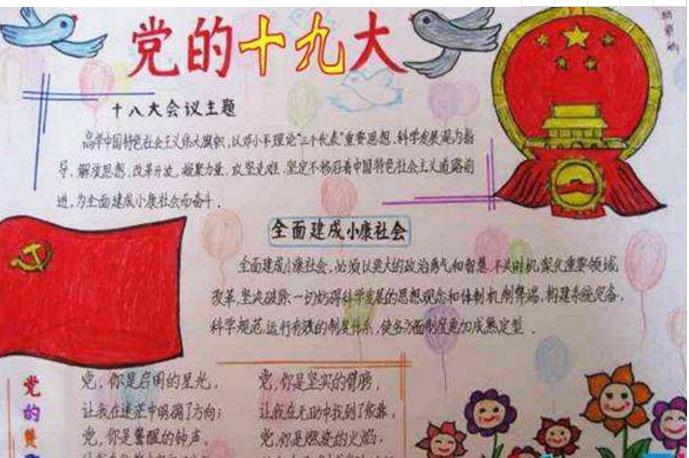 党的十九大
十八大会议主题
高举中国特色社会主义伟大旗帜,以邓小平理论"三个代表"重要思想、科学发展观为指
导、解放思想、改革开放、凝聚力量、攻坚克难、坚定不移沿着中国特色社会主义道路前
进,为全面建成小康社会而奋斗.
全面建成小康社会
全面建成小康社会,必须以更大的政治勇气和智慧,不失时机深化重要领域
改革,坚决破除一切妨碍科学发展的思想观念和体制机制弊端,构建系统完备,
科学规范,运行有效的制度体系,使各方面制度更加成熟定型.
党的
党,你是启明的星光,
让我在迷茫中明确了方向;
党,你是警醒的钟声,
党,你是坚实的臂膀,
让我在无助中找到了依靠,
党,你是燃烧的火焰,